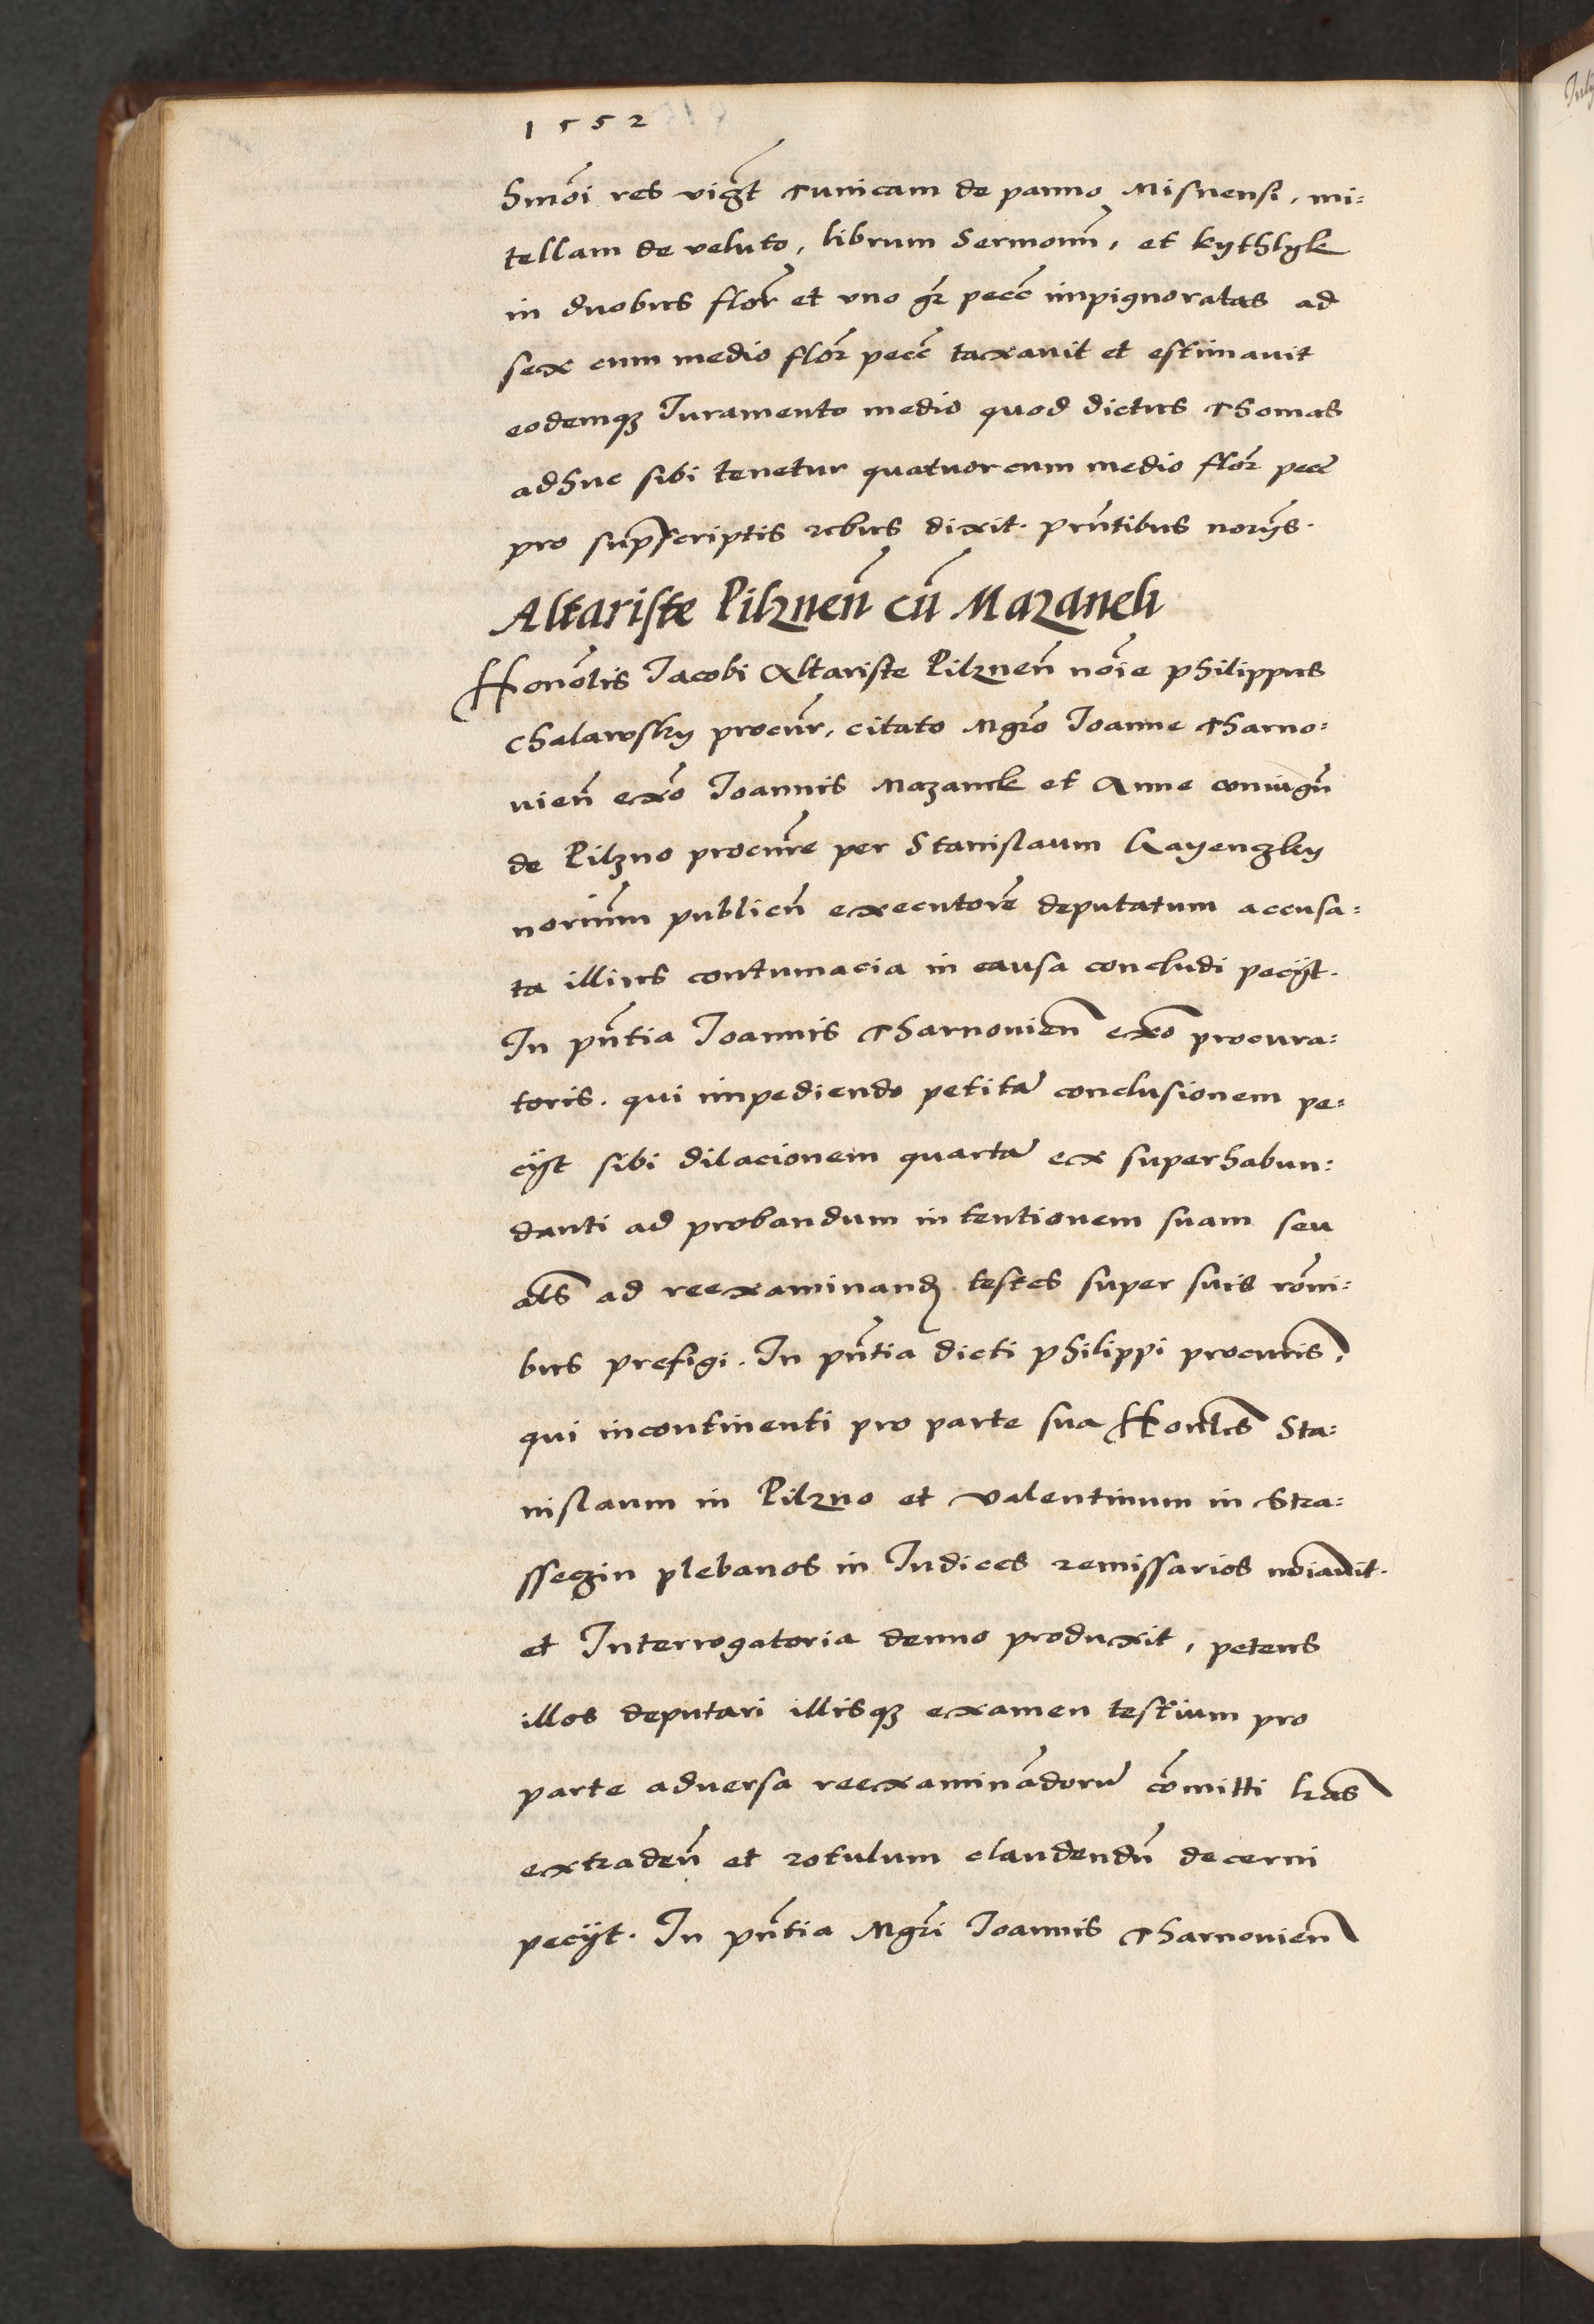 1552
hm̃oi res vigt̃ Tunicam de panno Misnensi, mi=
tellam de veluto, librum Sermonũ, et kythlyk
in duobus flor̃ et vno gr̃ pecc̃ impignoratas ad
sex cum medio flor̃ pecc̃ taxauit et estimauit
eodemqꝫ Iuramento medio quod dictus Thomas
adhuc sibi tenetur quatuor cum medio flor̃ pecc̃
pro sup̃scriptis rebus dixit. prñtibus norijs.
Altariste Pilznen̄ cū Mazanek
Honõlis Iacobi Altariste Pilznen̄ nõie Philippus
Chalawsky procur̃, citato Mgrõ Ioanne Tharno=
uien̄ exõ Ioannis Mazanek et Anne coniugũ
de Pilzno procur̃e per Stanislaum Kayenczky
noriũm publicũ executorẽ deputatum accusa=
ta illius contumacia in causa concludi pecijt.
In pñtia Ioannis Tharnouien̄ exõ procura=
toris. qui impediendo petitã conclusionem pe=
cijt sibi dilacionem quartã ex superhabun=
danti ad probandum intentionem suam seu
als̃ ad reexaminand testes super suis rõni=
bus prefigi. In pñtia dicti Philippi procuris̃,
qui incontinenti pro parte sua Honles̃ Sta=
nislaum in Pilzno et Valentinum in Stra=
sseczin plebanos in Iudices remissarios noiauit̃.
et Interrogatoria denuo produxit, petens
illos deputari illisqꝫ examen testium pro
parte aduersa reexaminãdorũ cõmitti lras̃
extraden̄ et rotulum claudendũ decerni
pecijt. In pñtia Mgrĩ Ioannis Tharnouien̄
July